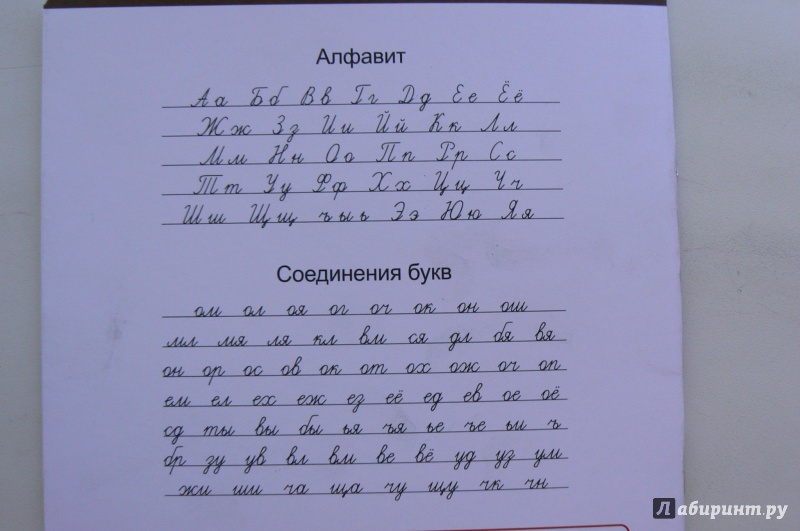 Алфавит
Аа Бб Вв Гг Дд Ее Ёё
Жж Зз Ии Йй Кк Лл
Мм Нн Оо Пп Рр Сс
Тт Уу Фф Хх Цц Чч
Шш Щщ ъыь Ээ Юю Яя
Соединения букв
ом ол оя ог оч ок он ош
мл мя ля кл вм ся дл бя вя
он ор ос ов ок от ох ож оч оп
ем ел ех еж ез её ед ев ое оё
сд ты вы бы ья ъя ье ъе ьи ъ
бр зу ув вл вм ве вё уд уз ум
жи ши ча ща чу щу чк чн
Лабиринт.ру